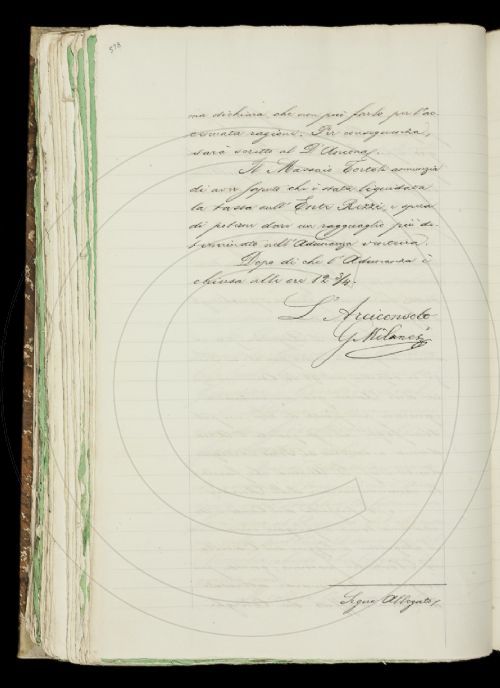 578
ma dichiara che non può farlo per l'ac-
cennata ragione. Per conseguenza,
sarà scritto al D'Ancona.
Il Massaio Tortoli annunzia
di aver saputo che è stata liquidata
la tassa sull'Ente Rezzi, e spera
di potere dare un ragguaglio più de-
terminato nell'Adunanza ventura.
Dopo di che l'Adunanza è
chiusa alle ore 12 3/4.
L'Arciconsolo
G Milanesi
Segue Allegato